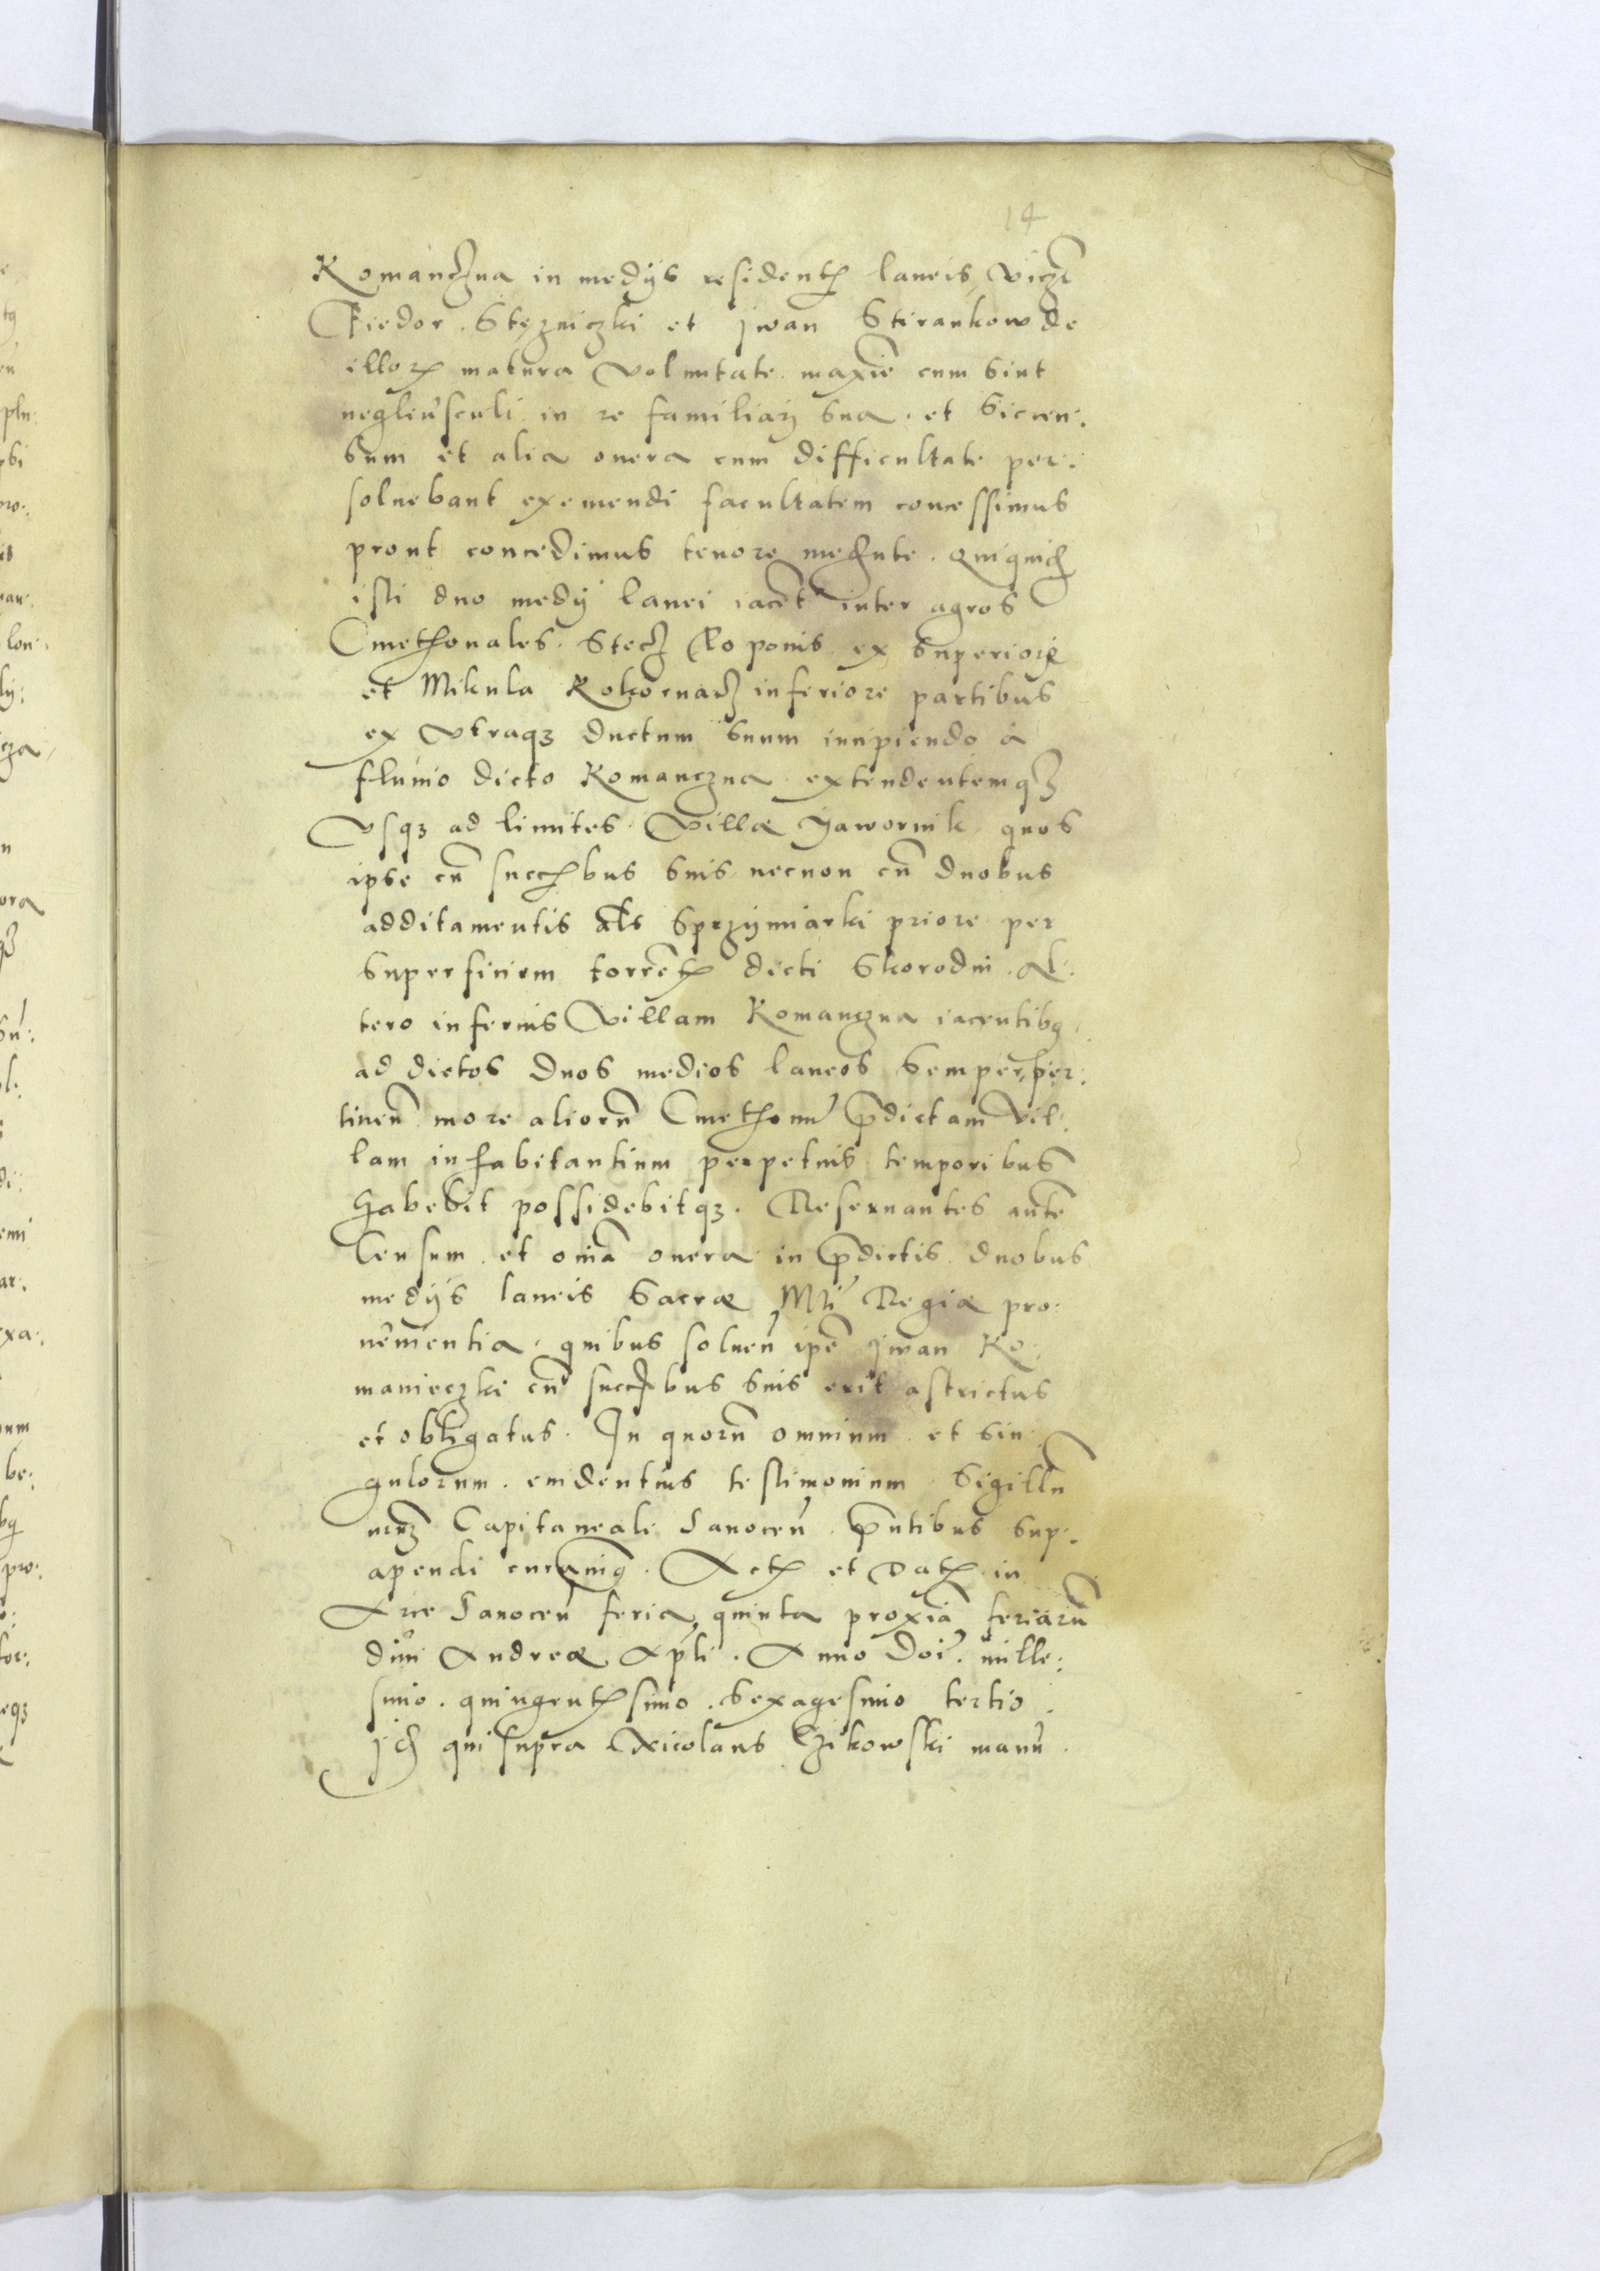 14
Romanczna in medijs resident laneis, vidzt
Fiedor Stężniczki et Jwan Stirankow de
illor matura voluntate maxie cum sint
negleusculi in re familiari sua et sic cen:
sum et alia onera cum difficultate per:
soluebant exemendi facultatem concessimus
prout concedimus tenore mednte. Quiquid
isti duo medij lanei iacet inter agros
Cmethonales Stecz Poponis ex superiore
et Mikula Rokoenacz inferiore partibus
ex vtraqz ductum suum incipiendo à
fluuio dicto Romanczna extendentemqz
Vsqz ad limites villæ Jawornik quos
ipse cu succbus suis necnon cu duobus
additamentis als Sprzymiarki priore per
superficiem torret dicti Skorodni Al:
tero inferius villam Romanczna iacentibq
ad dictos duos medios laneos semper per:
tinen more alioru Cmethonu pdictam vil:
lam inhabitantium perpetuis temporibus
habebit possidebitqz. Reseruantes aute
Censum et omia onera in pdictis duobus
medijs laneis Sacræ Mti Regiæ pro:
uenientia. quibus soluen ipe Jwan Ro:
manieczki cu succbus suis erit astrictus
et obligatus. In quoru omnium et sin:
gulorum euidentius testimonium Sigillu
nrz Capitaneale Sanocen pntibus sup:
apendi curauimq. Act et Dat in
Arce Sanocen feria quinta proxia feriaru
diui Andreæ Apli. Anno Doi mille:
simo quingentsimo sexagesimo tertio
Jd qui supra Nicolaus Czikowski manu